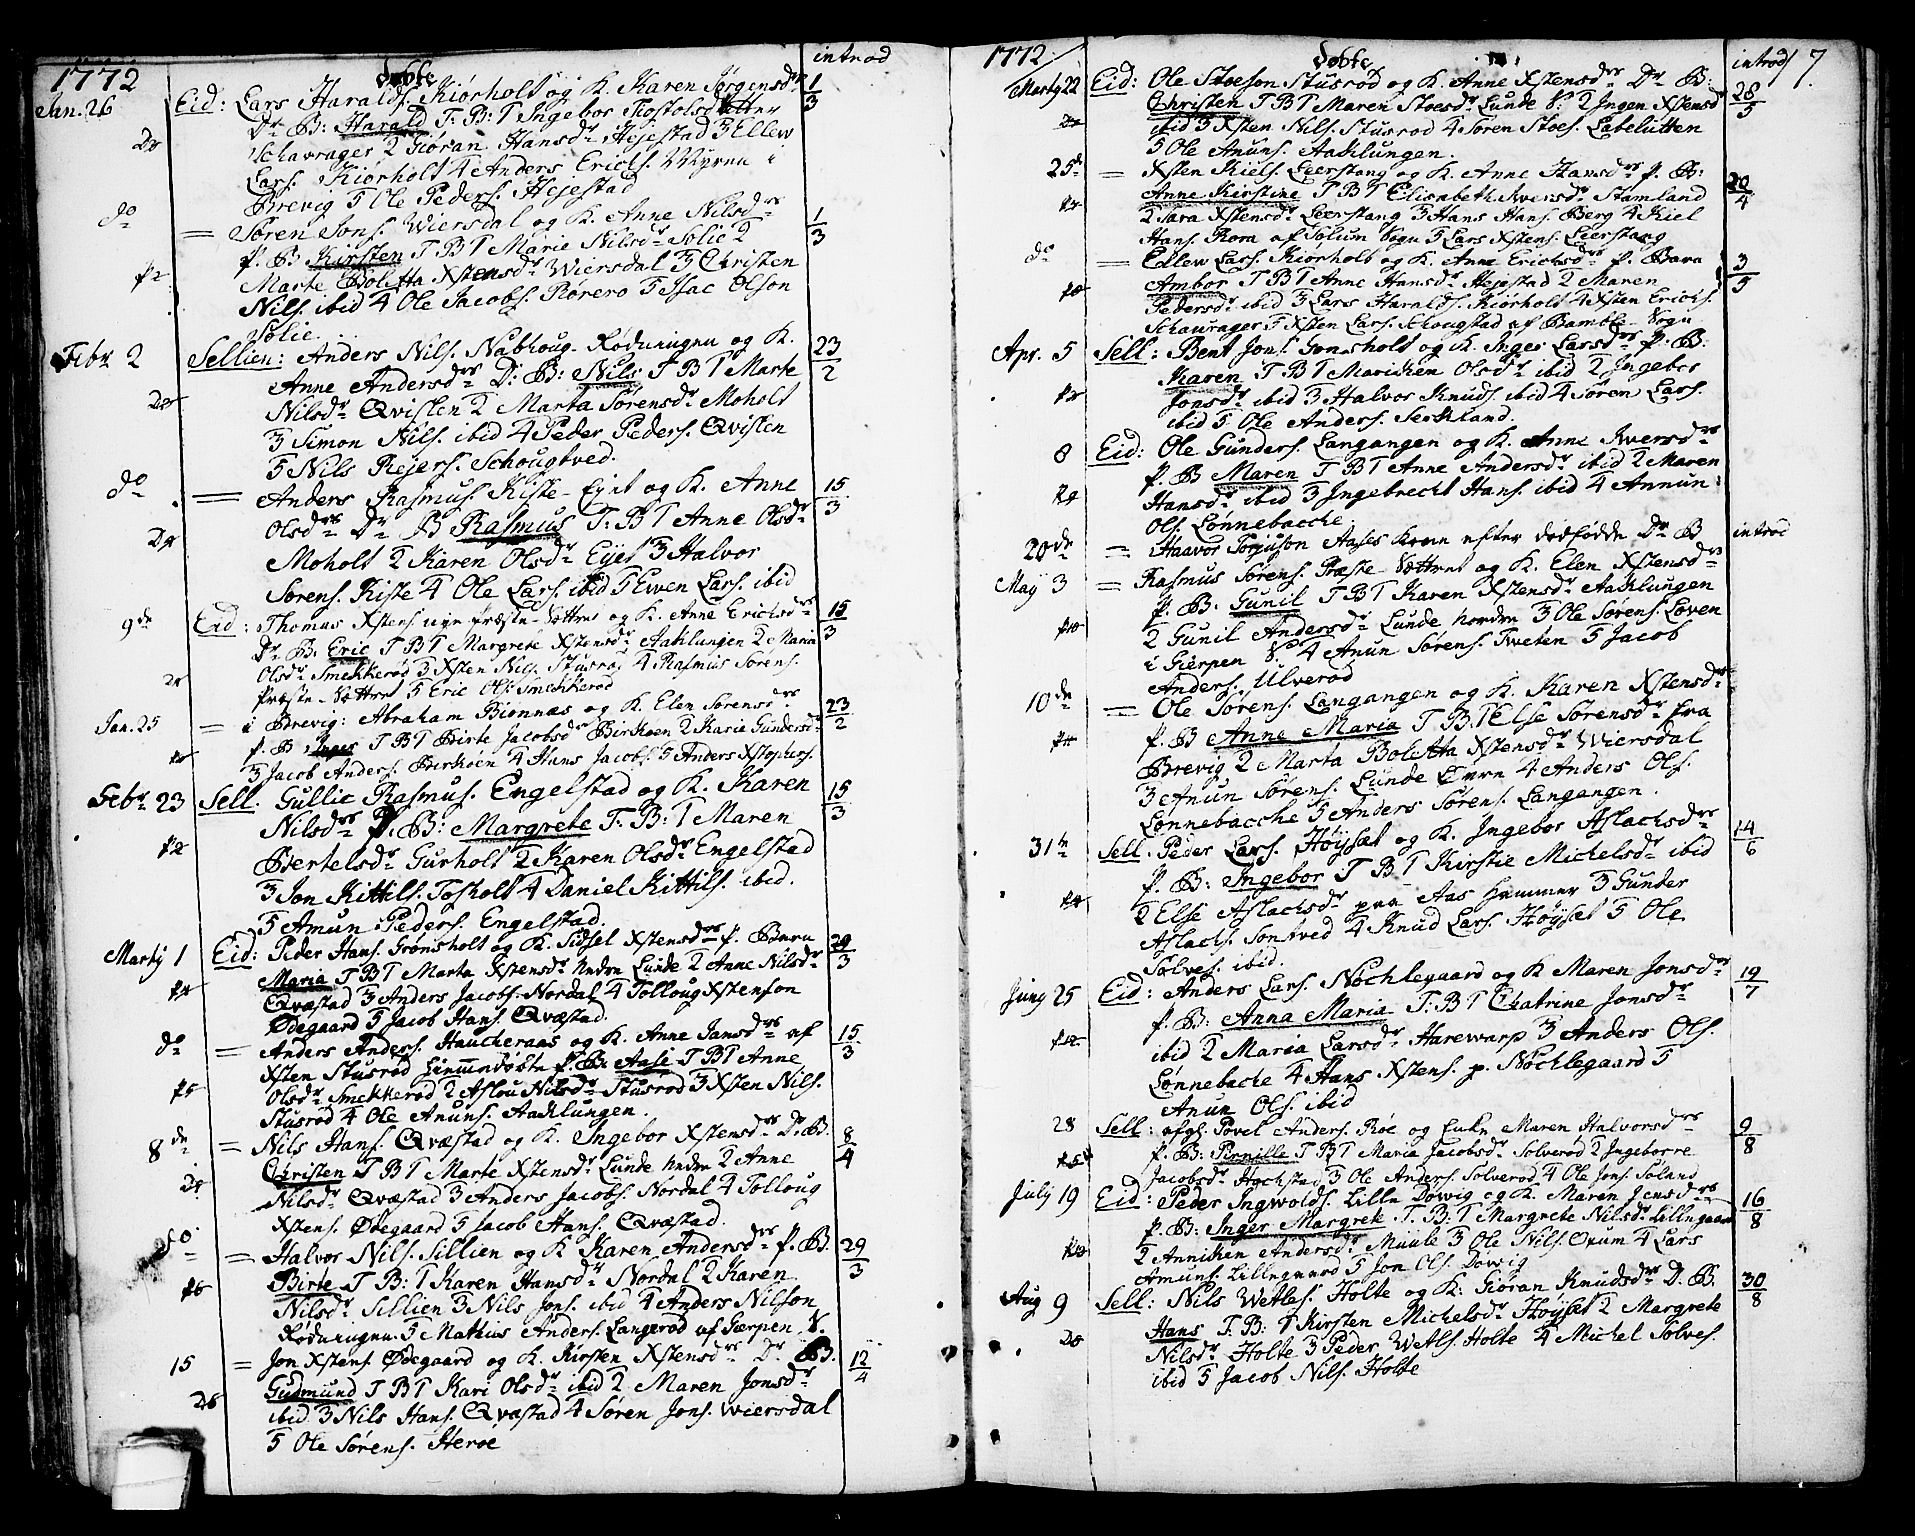 1772 Døbte introd
Jan. 26 Eid: Lars Haralds. Kiørholt og K. Karen Jørgensdr 1/3
Dr. B: Harald T. B: 1 Ingebor Tostolsdatter
Schavrager 2 Giøran Hansdr Hejestad 3 Ellew
Lars. Kiørholt 4 Anders Erichs. Myren i
Brevig 5 Ole Peders. Hejestad
do = Søren Jons. Wiersdal og K. Anne Nilsdrs 1/3
P. B Kirsten T B 1 Marie Nilsdr Solie 2
Marte Bolette Xstensdr Wiersdal 3 Christen
Nils. ibid 4 Ole Jacobs. Rørero 5 Isac Olson
Solie
Febr 2 Sellien: Anders Nils. Nabhoug. Rødningen og K. 23/2
Anne Andersdrs D: B: Nils T B 1 Marte
Nilsdr Qvisten 2 Marta Sørensdr Moholt
3 Simon Nils. ibid 4 Peder Peders. Qvisten
5 Nils Rejers. Schougtved.
do = Anders Rasmus. Kiste-Eyet og K. Anne 15/3
Olsdrs Dr B Rasmus T: B 1 Anne Olsdr
Moholt 2 Karen Olsdr Eyet 3 Halvor
Sørens. Kiste 4 Ole Lars. ibid 5 Ewen Lars. ibid
9de Eid: Thomas Xstens. nye præste-Sættret og K. Anne Erichsdrs 15/3
Dr B: Eric T B 1 Margrete Xstensdr Aaklungen 2 Maria
Olsdr Smekkerød 3 Xsten Nils. Stusrød 4 Rasmus Sørens.
Præste-Sættret 5 Eric Ols. Smekkerød
Jan. 25 = i Brevig: Abraham Biønnæs og K. Elen Sørensdrs 23/2
P. B Inger T B 1 Birte Jacobsdr Birkøen 2 Karia Gundersdr
3 Jacob Anders. Birkøen 4 Hans Jacobs. 5 Anders Xstophers.
Febr 23 Sell. Gullic Rasmus. Engelstad og K. Karen 15/3
Nilsdrs P. B: Margrete T: B: 1 Maren
Bertelsdr Gurholt 2 Karen Olsdr Engelstad
3 Jon Kittils. Toskolt 4 Daniel Kittils. ibid.
5 Amun Peders. Engelstad.
Martj 1 Eid: Peder Hans. Grønsholt og K. Sidsel Xstensdrs P. Barn 29/3
Maria T B 1 Marta Xstensdr Neden Lunde 2 Anne Nilsdr
Qvæstad 3 Anders Jacobs. Nordal 4 Tolloug Xstenson
Ødegaard 5 Jacob Hans. Qvæstad.
do = Anders Anders. Haucheraas og K. Anne Jansdrs af 15/3
Xsten Stusrød hiemmedøbte P. B: Aase T B 1 Anne
Olsdr Smekkerød 2 Aslou Nilsdr Stusrød 3 Xsten Nils.
Stusrød 4 Ole Anuns. Aaklungen.
8de = Nils Hans. Qvæstad og K. Ingebor Xstensdrs D. B. 8/4
Christen T B 1 Marte Xstensdr Lunde neden 2 Anne
Nilsdr Qvæstad 3 Anders Jacobs. Nordal 4 Tolloug
Xstens. Ødegaard 5 Jacob Hans. Qvæstad.
do = Halvor Nils. Sillien og K Karen Andersdrs P. B. 29/3
Birte T B: 1 Karen Hansdr Nordal 2 Karen
Nilsdr Sillien 3 Nils Jons. ibid 4 Anders Nilson
Rødningen 5 Mathias Anders. Langerød af Gierpen S.
15 = Jon Xstens. Ødegaard og K. Kirsten Xstensdrs Dr B. 12/4
Gudmund T B 1 Kari Olsdr ibid 2 Maren Jonsdr
ibid 3 Nils Hans. Qvæstad 4 Søren Jons. Wiersdal
5 Ole Sørens. Herøe
1772 Døbte introd 7
Martj 22 Eid: Ole Stoeson Stusrød og K. Anne Xstensdrs Dr B: 28/5
Christen T B 1 Maren Stoesdr Lunde S: 2 Ingen Xstensdr
ibid 3 Xsten Nils. Stusrød 4 Søren Stoes. Labelutten
5 Ole Anuns. Aaklungen.
25de = Xsten Kiels. Leerstang og K. Anne Hansdrs P. B: 20/4
Anne Kirstine T B 1 Elisabeth Iwersdr Stamland
2 Sara Xstensdr Leerstang 3 Hans Hans. Berg 4 Kiel
Hans. Rora af Solum Sogn 5 Lars Xstens. Leerstang
do = Ellew Lars. Kiørholt og K. Anne Erichsdrs P. Barn 3/5
Ambor T B 1 Anne Hansdr Hejestad 2 Maren
Pedersdr ibid 3 Lars Haralds. Kiørholt 4 Xsten Erichs.
Schaurager 5 Xsten Lars. Schougstad af Bamble-Sogn
Apr. 5 Sell: Bent Jons. Gonsholt og K. Inger Larsdrs P. B:
Karen T B 1 Mariken Olsdr ibid 2 Ingebor
Jonsdr ibid 3 Halvor Knuds. ibid 4 Søren Lars.
ibid 5 Ole Anders. Serkland.
8 Eid: Ole Gunders. Langangen og K. Anne Iwersdrs
P. B Maren T B 1 Anne Andersdr ibid 2 Maren
Hansdr ibid 3 Ingebrecht Hans. ibid 4 Annun
Ols. Lønnebacche
20de = Haavor Torjuson Aases Kone efter dødfødde Dr B introd
May 3 = Rasmus Sørens. Præste-Sættret og K. Elen Xstensdrs
P. B: Gunil T B 1 Karen Xstensdr Aaklungen
2 Gunil Andersdr Lunde neden 3 Ole Sørens. Løven
i Gierpen S. 4 Anun Sørens. Tweten 5 Jacob
Anders. Ulverød
10de = Ole Sørens. Langangen og K. Karen Xstensdrs
P. B Anne Maria T B. 1 Else Sørensdr fra
Brevig 2 Marta Boletta Xstensdr Wiersdal
3 Anun Sørens. Lunde Øvre 4 Anders Ols.
Lønnebacche 5 Anders Sørens. Langangen.
31te Sell. Peder Lars. Høysæt og K. Ingebor Aslachsdrs 14/6
P. B: Ingebor T B 1 Kirstie Michelsdr ibid
2 Else Aslachsdr paa Aas hammer 3 Gunder
Aslachs. Sontved 4 Knud Lars. Høysæt 5 Ole
Solves. ibid.
Junj 25 Eid: Anders Lars. Nøchlegaard og K Maren Jonsdrs 19/7
P. B: Anna Maria T: B 1 Chatrine Jonsdr
ibid 2 Maria Larsdr Harewarp 3 Anders Ols.
Lønnebacke 4 Hans Xstens. p. Nøchlegaard 5
Anun Ols. ibid
28 Sell: afgl. Povel Anders. Røe og Enke Maren Halvorsdrs 9/8
P. B: Pernille T B 1 Maria Jacobsdr Solverød 2 Ingeborre
Jacobsdr Hochstad 3 Ole Anders. Solverød 4 Ole Jons. Søland
July 19 Eid: Peder Ingwolds. Lille Døwig og K. Maren Jensdrs 16/8
P. B: Inger Margrete T. B: 1 Margrete Nilsdr Lillegaard
2 Anniken Andersdr Muule 3 Ole Nils. Ørum 4 Lars
Amuns. Lillegaard 5 Jon Ols. Døwig
Aug 9 Sell: Nils Wetles. Holte og K: Giøran Knudsdrs D. B. 30/8
Hans T. B: 1 Kirsten Michelsdr Høyset 2 Margrete
Nilsdr Holte 3 Peder Wetls. Holte 4 Michel Solves.
ibid 5 Jacob Nils. Holte